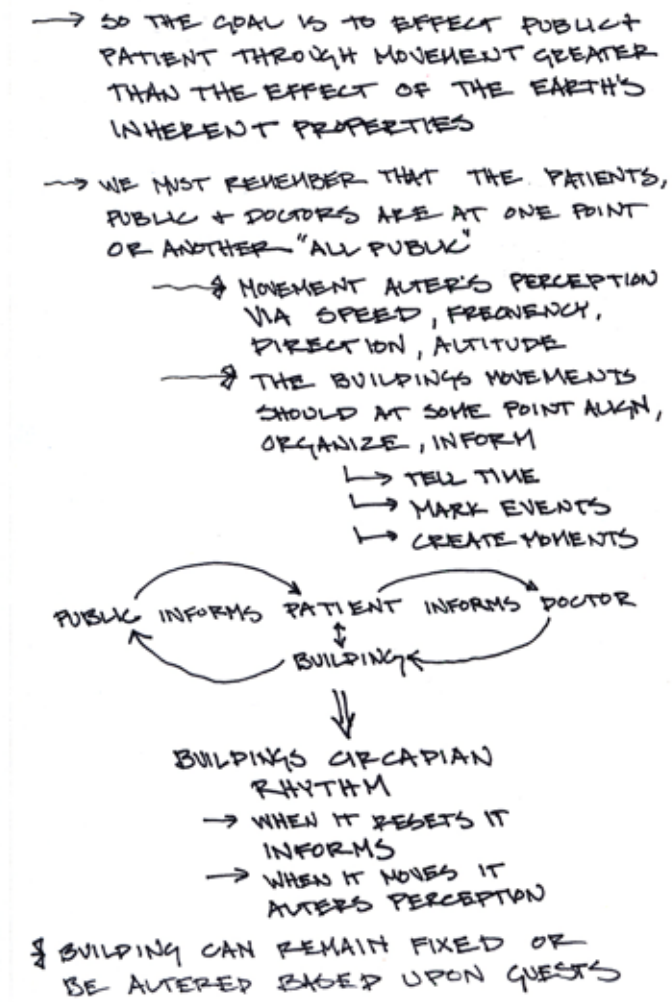 → SO THE GOAL IS TO EFFECT PUBLIC +
PATIENT THROUGH MOVEMENT GREATER
THAN THE EFFECT OF THE EARTH'S
INHERENT PROPERTIES
→ WE MUST REMEMBER THAT THE PATIENTS,
PUBLIC + DOCTORS ARE AT ONE POINT
OR ANOTHER "ALL PUBLIC"
→ MOVEMENT ALTER'S PERCEPTION
VIA SPEED, FREQUENCY,
DIRECTION, ALTITUDE
→ THE BUILDINGS MOVEMENTS
SHOULD AT SOME POINT ALIGN,
ORGANIZE, INFORM
→ TELL TIME
→ MARK EVENTS
→ CREATE MOMENTS
PUBLIC INFORMS PATIENT INFORMS DOCTOR
BUILDING
BUILDINGS CIRCADIAN
RHYTHM
→ WHEN IT RESETS IT
INFORMS
→ WHEN IT MOVES IT
ALTERS PERCEPTION
BUILDING CAN REMAIN FIXED OR
BE ALTERED BASED UPON GUESTS